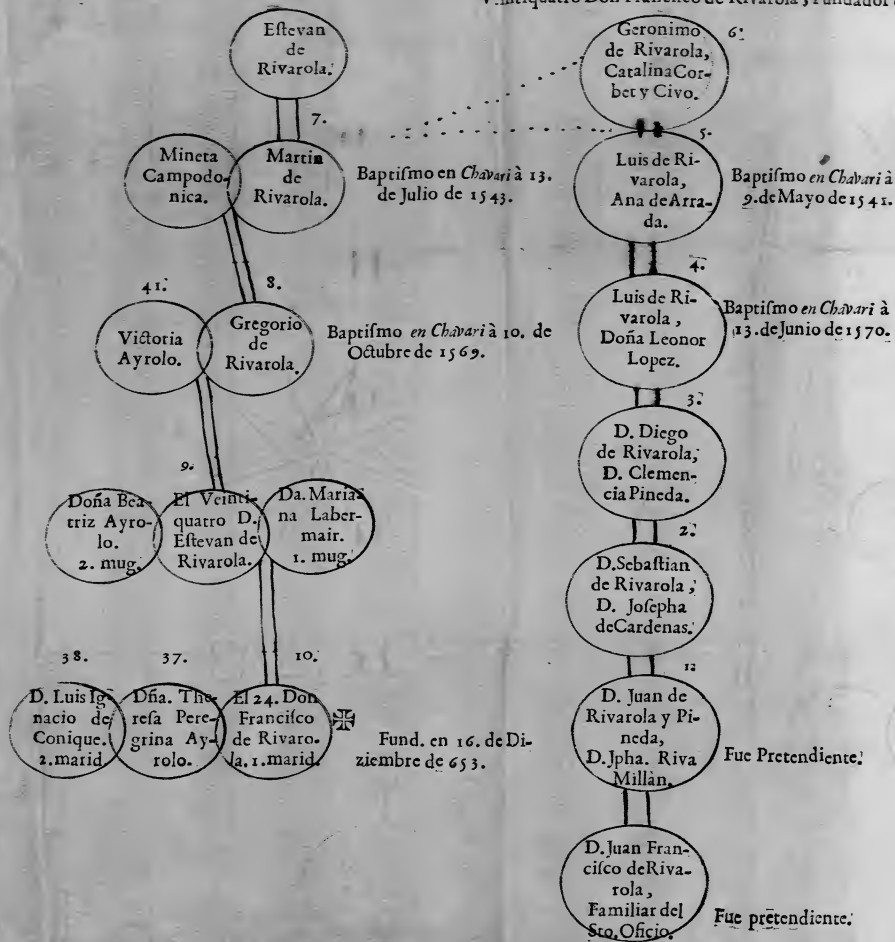 Veintiquatro Don Francisco de Rivarola, y Fundador
Eſtevan
de
Rivarola.
7.
Mineta
Campodo-
nica.
Martin
de
Rivarola.
Baptiſmo en Chavari à 13.
de Julio de 1543.
41.
8.
Victoria
Ayrolo.
Gregorio
de
Rivarola.
Baptiſmo en Chavari à 10. de
Octubre de 1569.
9.
Doña Bea-
triz Ayro-
lo.
2. mug.
El Veinti-
quatro D.
Eſtevan de
Rivarola.
Da. Maria-
na Laber-
mair.
1. mug.
38.
37.
10.
D. Luis Ig-
nacio de
Conique.
2.marid
Dña. The-
reſa Pere-
grina Ay-
rolo.
El 24. Don
Franciſco
de Rivaro-
la, 1. marid.
Fund. en 16. de Di-
ziembre de 653.
6.
Geronimo
de Rivarola,
Catalina Cor-
bet y Civo.
5.
Luis de Ri-
varola,
Ana de Arra-
da.
Baptiſmo en Chavari à
9. de Mayo de 1541.
4.
Luis de Ri-
varola,
Doña Leonor
Lopez.
Baptiſmo en Chavari à
13. de Junio de 1570.
3.
D. Diego
de Rivarola,
D. Clemen-
cia Pineda.
2.
D. Sebaſtian
de Rivarola,
D. Joſepha
de Cardenas.
1.
D. Juan de
Rivarola y Pi-
neda,
D. Jpha. Riva
Millàn.
Fue Pretendiente.
D. Juan Fran-
ciſco de Riva-
rola,
Familiar del
Sto. Oficio.
Fue prẽtendiente.